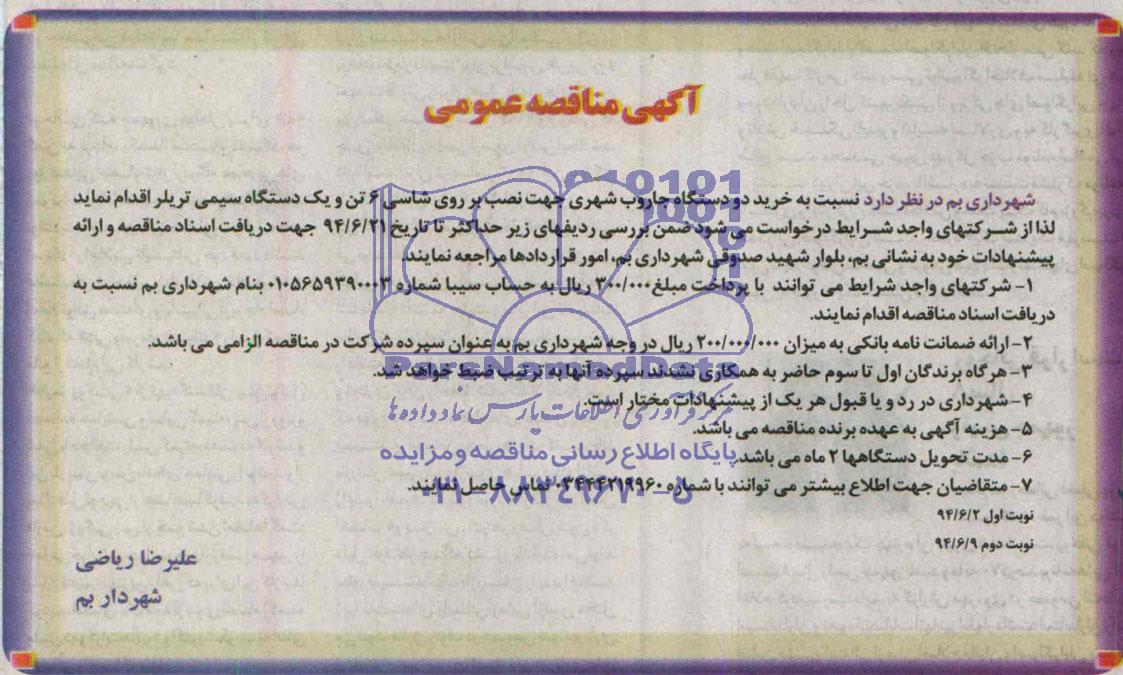 آگهی مناقصه عمومی
شهرداری بم در نظر دارد نسبت به خرید دو دستگاه جاروب شهری جهت نصب بر روی شاسی ۶ تن و یک دستگاه سیمی تریلر اقدام نماید
لذا از شرکتهای واجد شرایط درخواست می شود ضمن بررسی ردیفهای زیر حداکثر تا تاریخ ۹۴/۶/۲۱ جهت دریافت اسناد مناقصه و ارائه
پیشنهادات خود به نشانی بم، بلوار شهید صدوقی شهرداری بم، امور قراردادها مراجعه نمایند.
۱- شرکتهای واجد شرایط می توانند با پرداخت مبلغ ۳۰۰/۰۰۰ ریال به حساب سیبا شماره ۰۱۰۵۶۵۹۳۹۰۰۰۳ بنام شهرداری بم نسبت به
دریافت اسناد مناقصه اقدام نمایند.
۲- ارائه ضمانت نامه بانکی به میزان ۲۰۰/۰۰۰/۰۰۰ ریال در وجه شهرداری بم به عنوان سپرده شرکت در مناقصه الزامی می باشد.
۳- هرگاه برندگان اول تا سوم حاضر به همکاری نشدند سپرده آنها به ترتیب ضبط خواهد شد.
ParsNamadData
۴- شهرداری در رد و یا قبول هر یک از پیشنهادات مختار است.
مرکز فرآوری اطلاعات پارس نماد داده ها
۵- هزینه آگهی به عهده برنده مناقصه می باشد.
پایگاه اطلاع رسانی مناقصه و مزایده
۶- مدت تحویل دستگاهها ۲ ماه می باشد.
۷- متقاضیان جهت اطلاع بیشتر می توانند با شماره ۰۳۴۴۴۲۱۹۹۶۰ تماس حاصل نمایند.
۰۲۱-۸۸۳۴۹۶۷۰-۵
نوبت اول ۹۴/۶/۲
نوبت دوم ۹۴/۶/۹
علیرضا ریاضی
شهردار بم